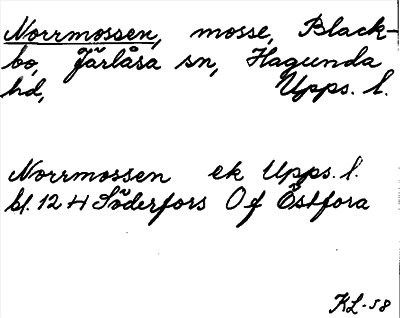 Norrmossen, mosse, Black-
bo, Järlåsa sn, Hagunda
hd, Upps. l.
Norrmossen ek Upps. l.
bl. 12 H Söderfors Of Östfora
KL-58